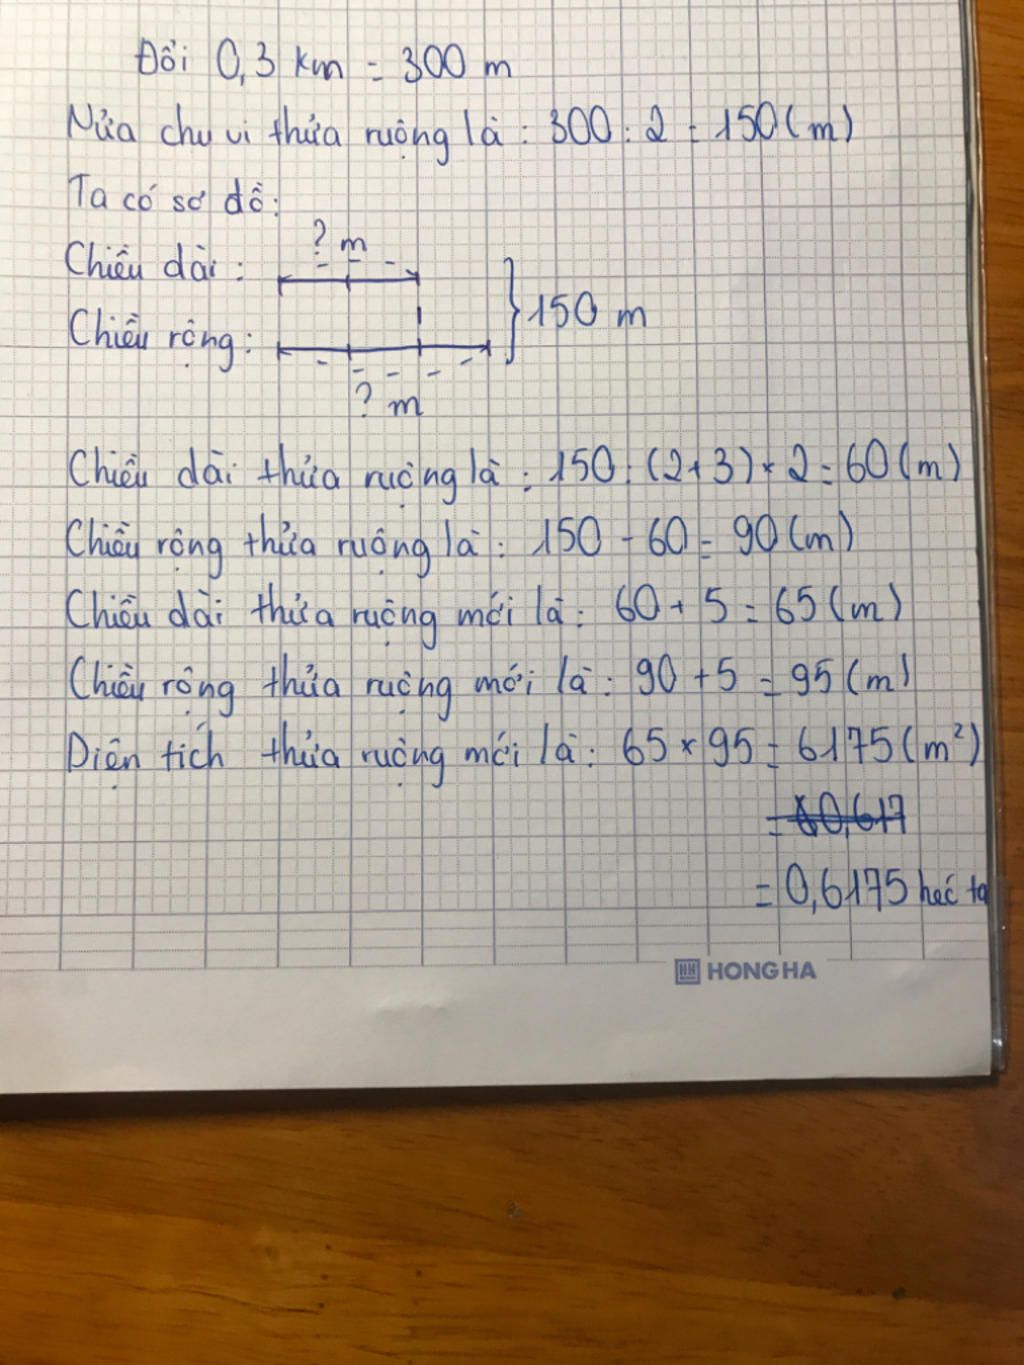 Đổi 0,3 km = 300 m
Nửa chu vi thửa ruộng là : 300 : 2 = 150 (m)
Ta có sơ đồ :
? m
Chiều dài :
150 m
Chiều rộng :
? m
Chiều dài thửa ruộng là : 150 : (2+3) × 2 = 60 (m)
Chiều rộng thửa ruộng là : 150 - 60 = 90 (m)
Chiều dài thửa ruộng mới là : 60 + 5 = 65 (m)
Chiều rộng thửa ruộng mới là : 90 + 5 = 95 (m)
Diện tích thửa ruộng mới là : 65 × 95 = 6175 (m²)
= 0,6175 héc ta
HH HONG HA